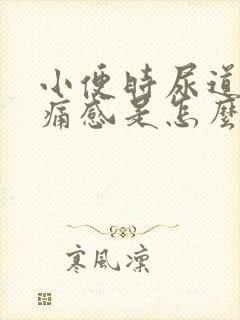 小便時尿道
痛感是怎麼
寒風凜